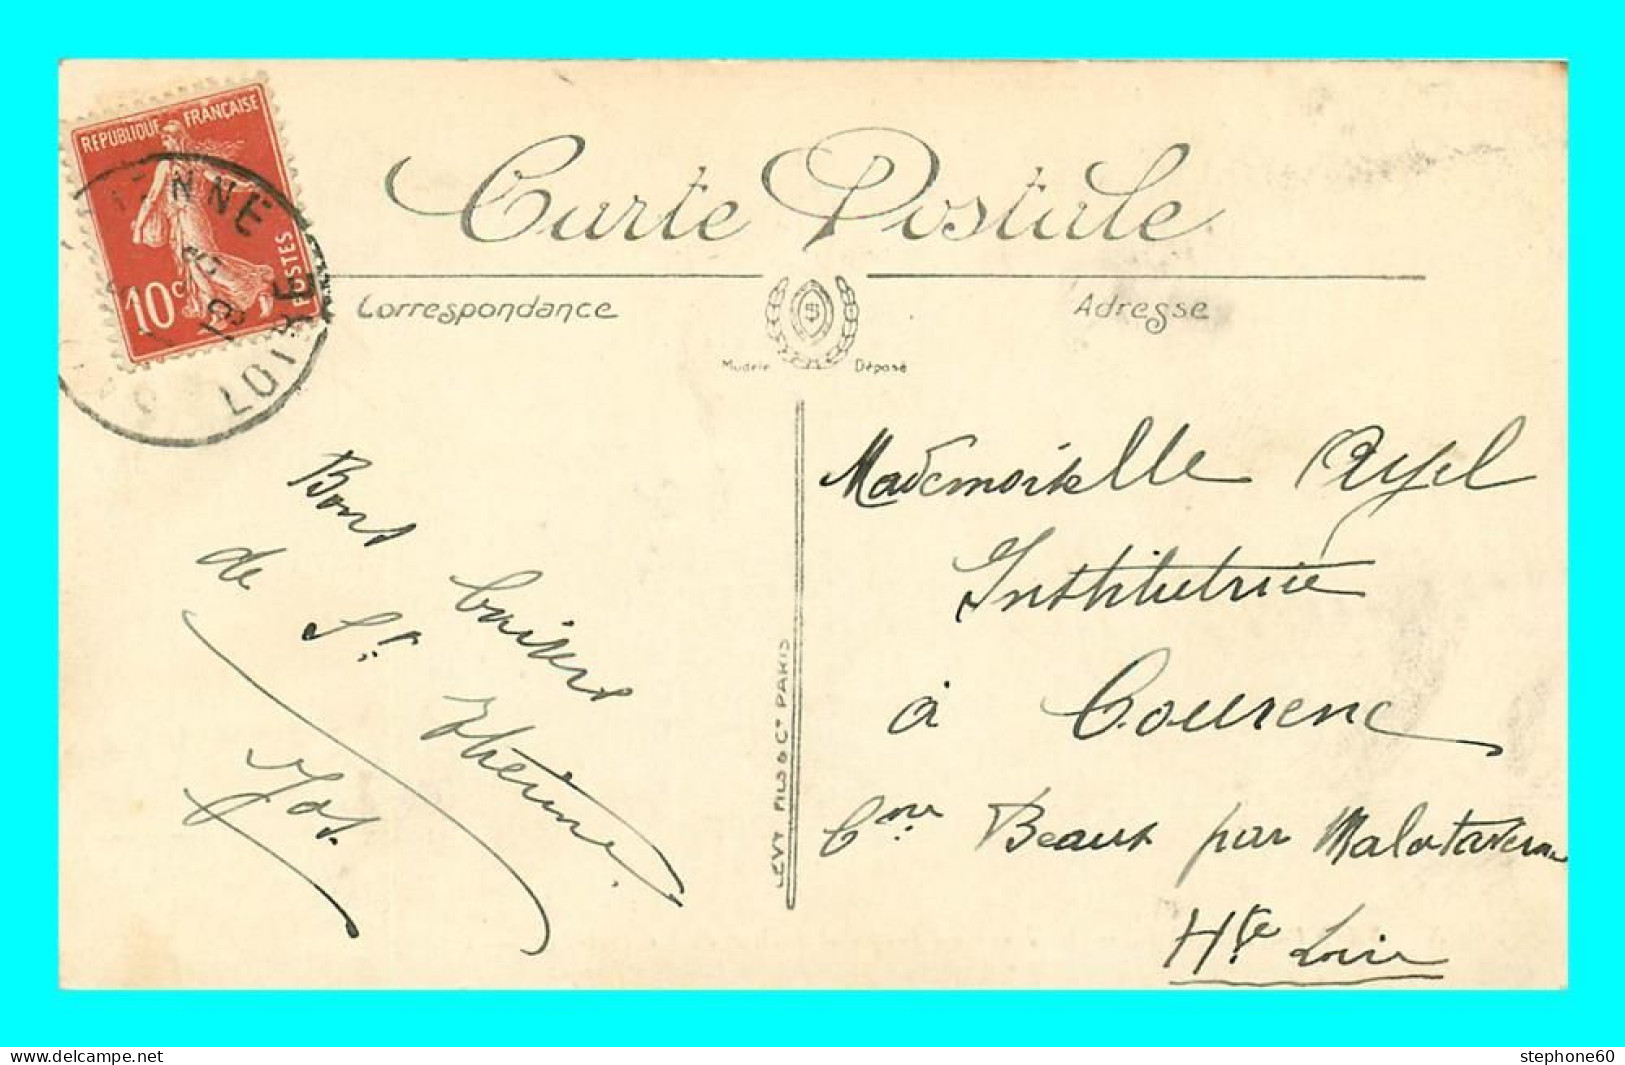 REPUBLIQUE FRANÇAISE
POSTES
10c
LOIRE
Carte Postale
Correspondance
Adresse
Modèle Déposé
LEVY FILS & Cie PARIS
Bons baisers
de St. Etienne.
Mademoiselle Ayel
Institutrice
à Courenc
Cne Beaux par Malataverne
Hte Loire
stephone60